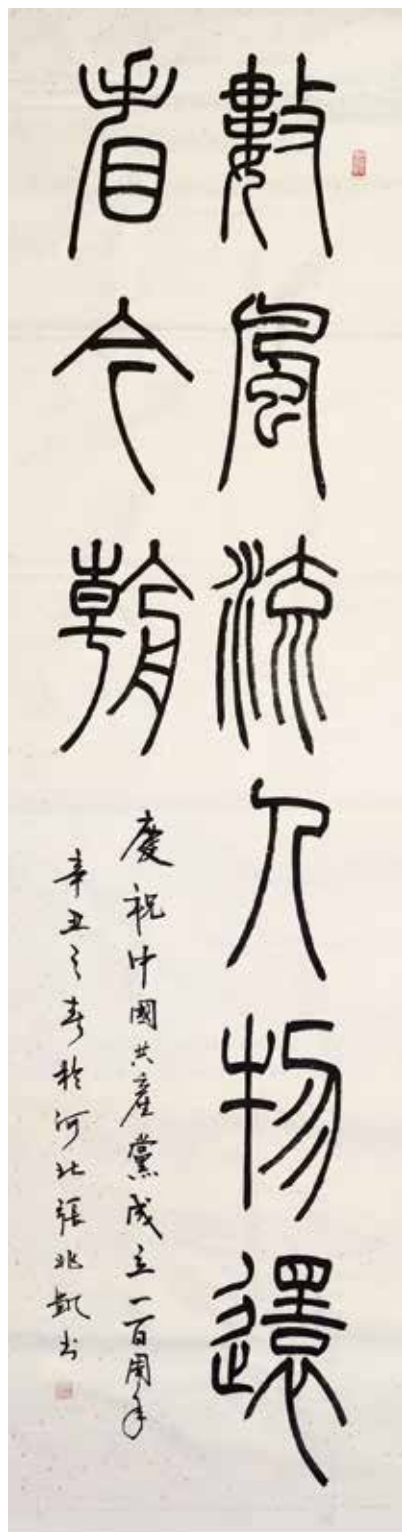 數風流人物還
看今朝
慶祝中國共產黨成立一百周年
辛丑之春於河北張兆凱書